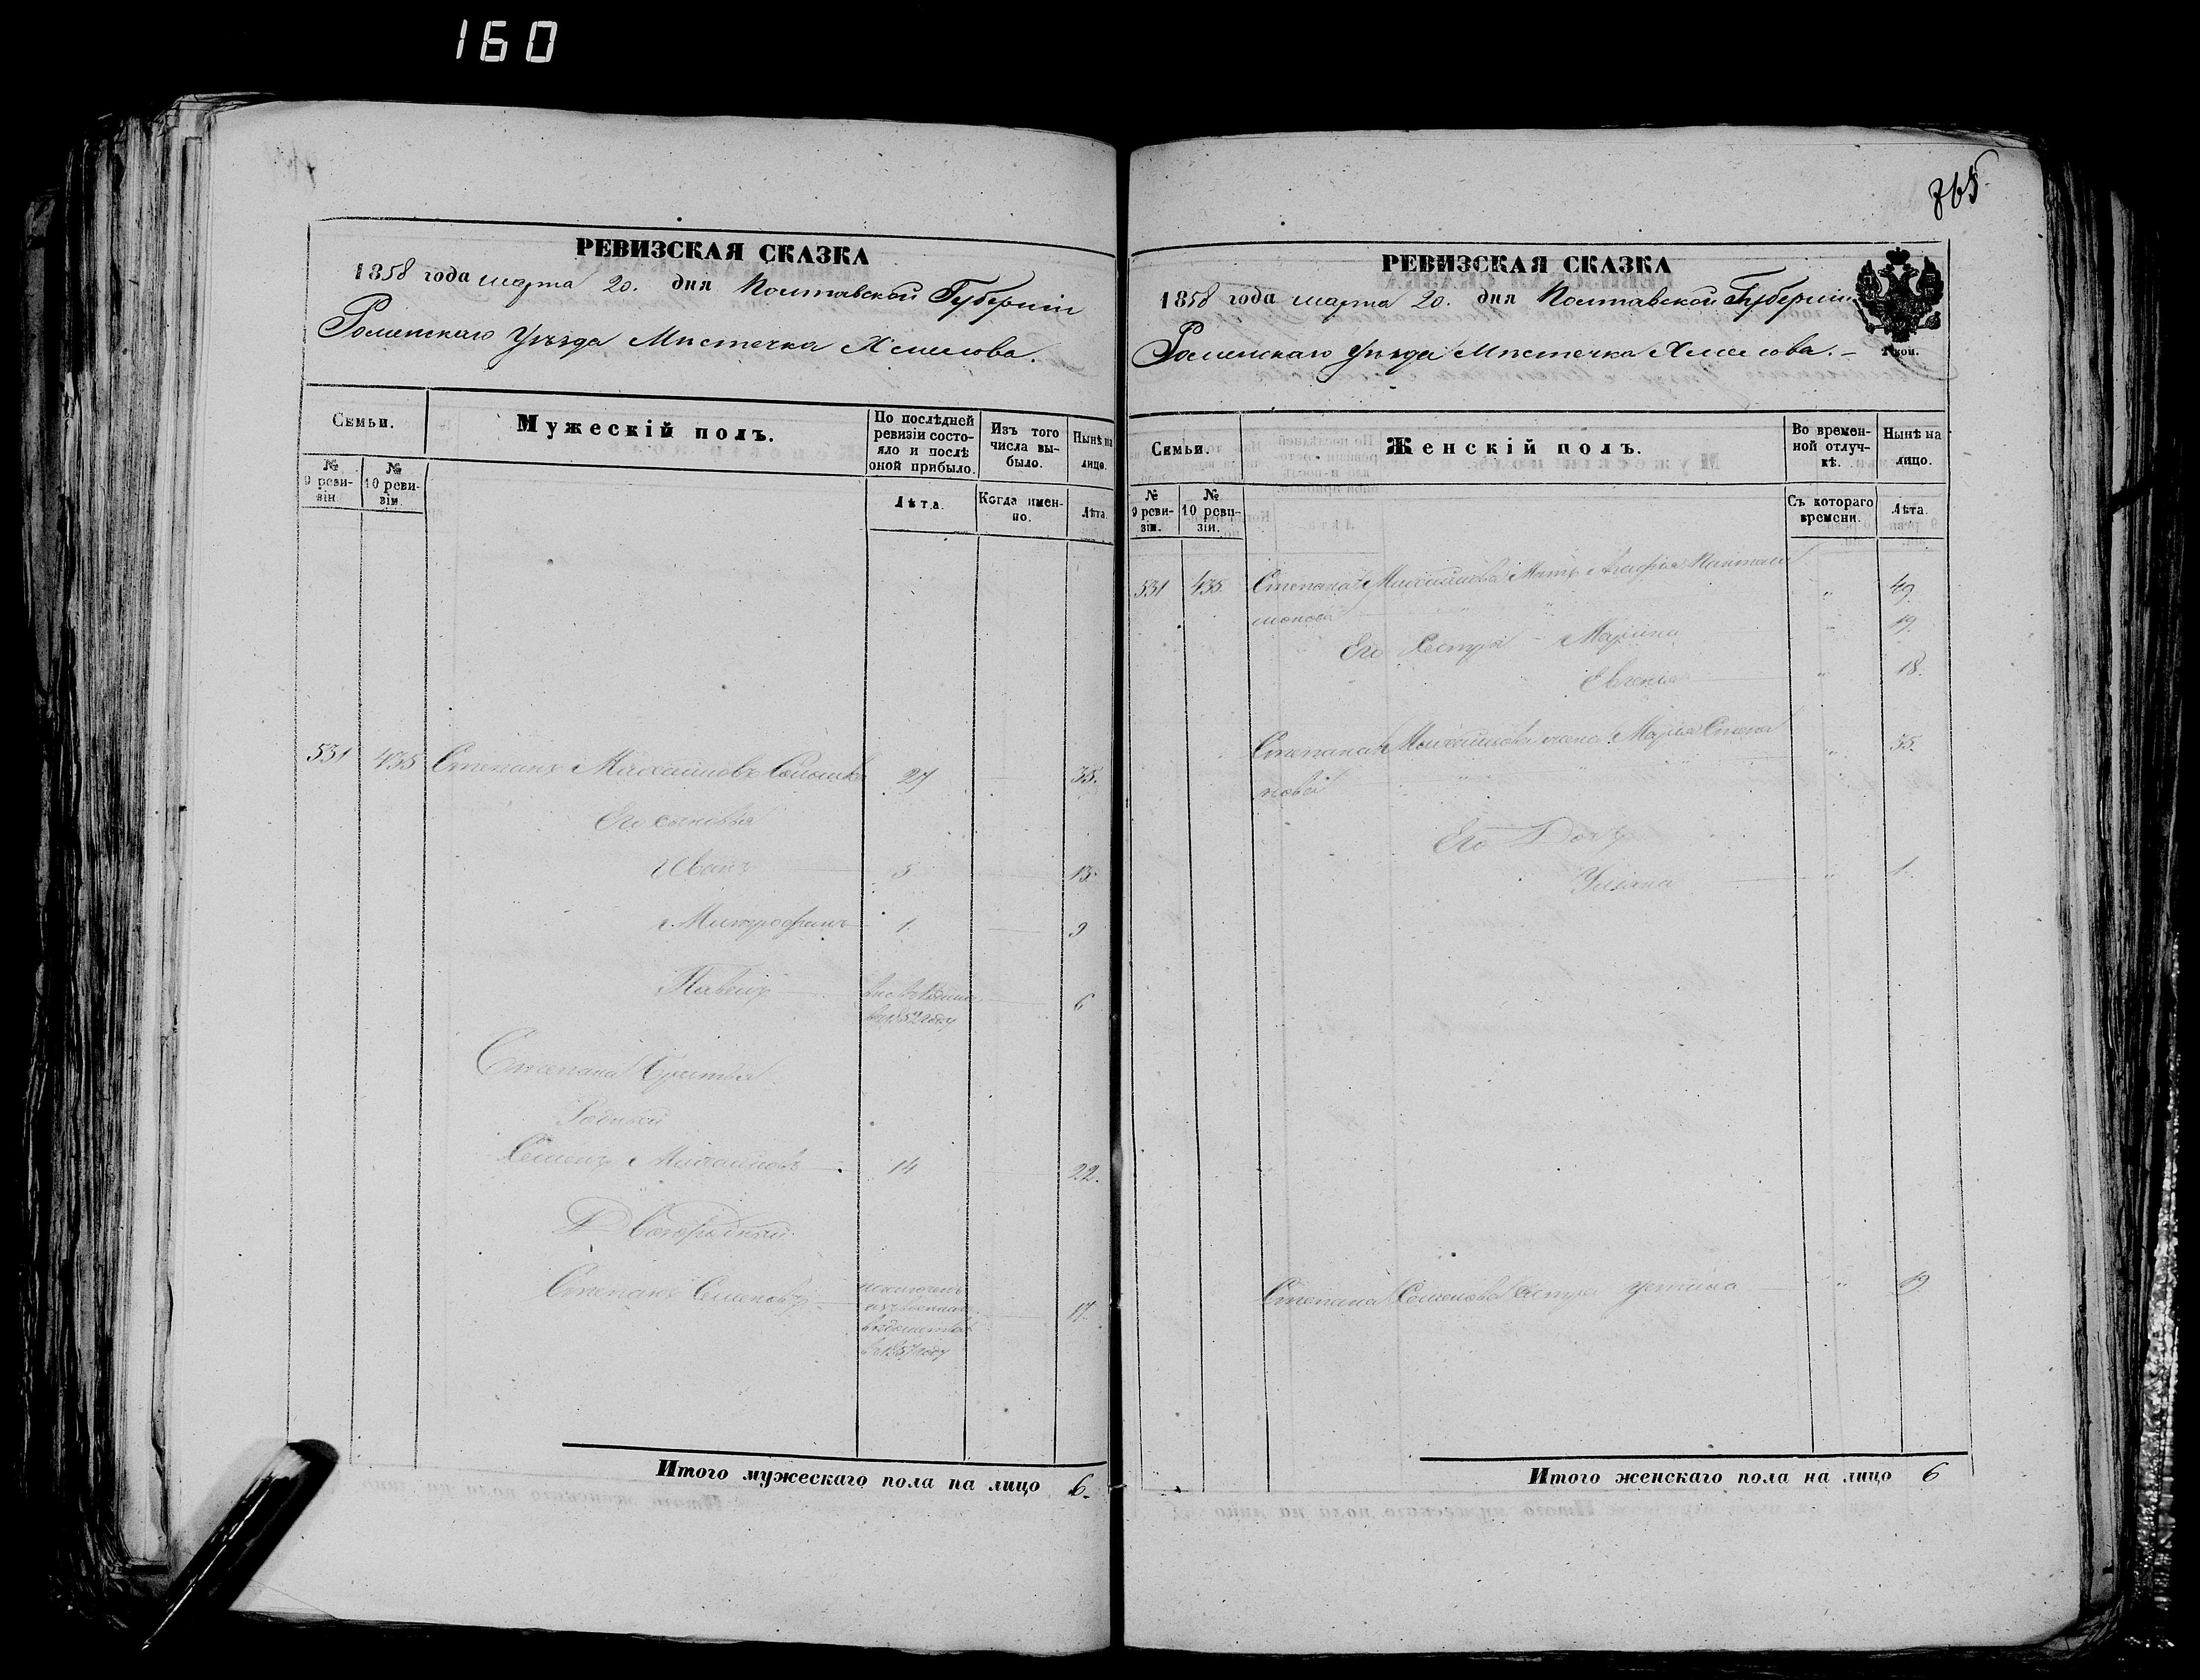 160
365
РЕВИЗСКАЯ СКАЗКА
1858 года марта 20. дня Полтавской Губерніи
Роменскаго Уѣзда Мѣстечка Хмелова.
Семьи.
Мужескій полъ.
По послѣдней ревизіи состояло и послѣ оной прибыло.
Изъ того числа выбыло.
Нынѣ на лицо.
№ 9 ревизіи
№ 10 ревизіи.
Лѣта.
Когда именно.
Лѣта.
531 435 Степанъ Михайловъ 27 35.
Его сыновья
Иванъ 5 13.
Митрофанъ 1. 9
Павелъ 6
въ 1852 году
Степана братья
Родный
Семенъ Михайловъ 14 22.
Двоюродный
Степанъ Семеновъ исключенъ 17.
изъ военнаго
вѣдомства
въ 1857 году
Итого мужескаго пола на лицо 6.
РЕВИЗСКАЯ СКАЗКА
1858 года марта 20. дня Полтавской Губерніи
Роменскаго Уѣзда Мѣстечка Хмелова.
Семьи.
Женскій полъ.
Во временной отлучкѣ.
Нынѣ на лицо.
№ 9 ревизіи.
№ 10 ревизіи.
Съ котораго времени.
Лѣта.
531 435. Степана Михайлова Мать Агафія Пантели " 49
монова
Его Сестра Марина " 19.
Евгенія " 18.
Степана Михайлова жена Марія Степа " 35.
нова
Его Дочь
Уліяна " 1.
Степана Семенова Сестра Устина " 19.
Итого женскаго пола на лицо 6